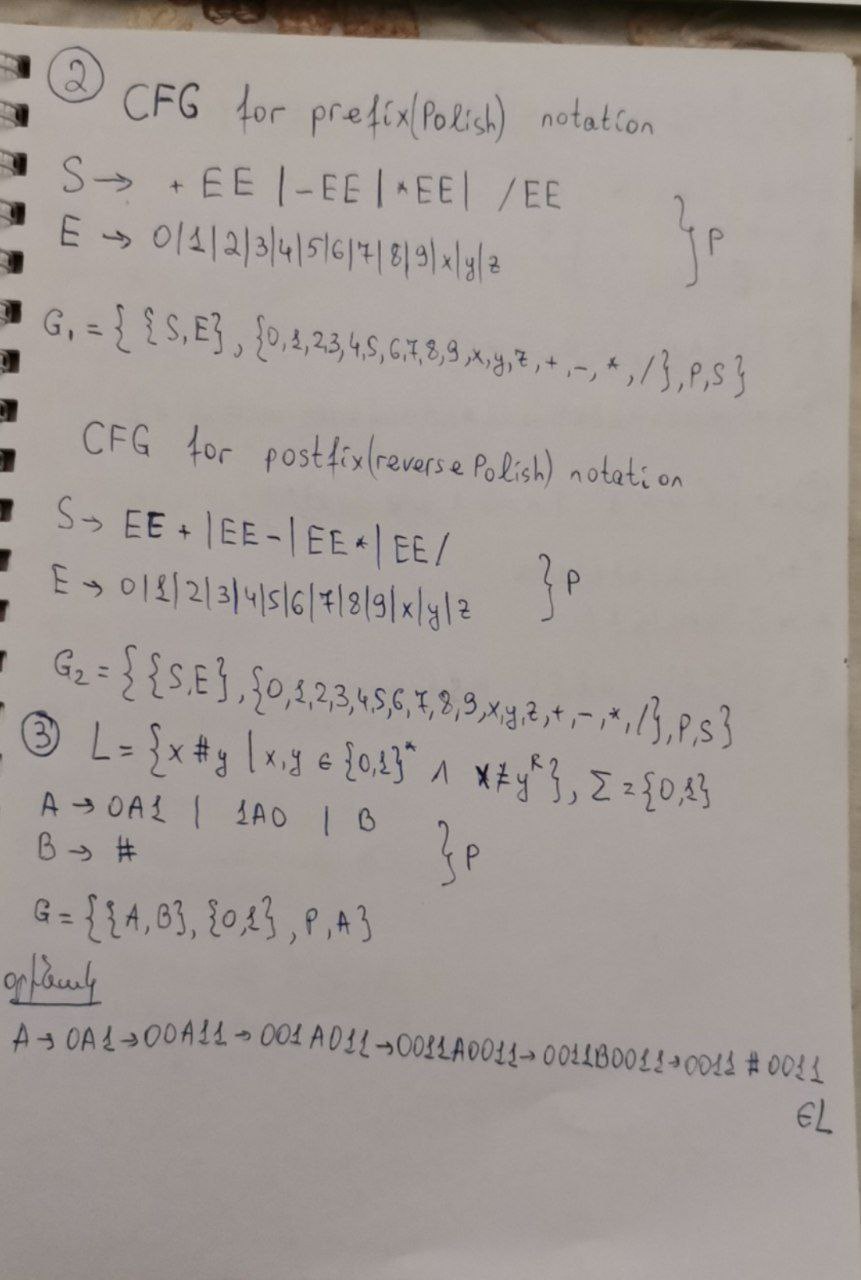 ②
CFG for prefix(Polish) notation
S → + EE | -EE | *EE | /EE
E → 0|1|2|3|4|5|6|7|8|9|x|y|z } P
G₁ = { {S,E}, {0,1,2,3,4,5,6,7,8,9,x,y,z,+,-,*,/}, P,S }
CFG for postfix(reverse Polish) notation
S → EE + | EE - | EE * | EE /
E → 0|1|2|3|4|5|6|7|8|9|x|y|z } P
G₂ = { {S,E}, {0,1,2,3,4,5,6,7,8,9,x,y,z,+,-,*,/}, P,S }
③ L = {x # y | x,y ∈ {0,1}* ∧ x ≠ yᴿ}, Σ = {0,1}
A → 0A1 | 1A0 | B
B → # } P
G = { {A,B}, {0,1}, P, A }
A → 0A1 → 00A11 → 001A011 → 0011A0011 → 0011B0011 → 0011 # 0011
∈L